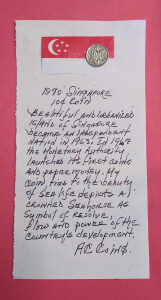 1970 Singapore
10¢ Coin
Beautiful and urbanized
Island of Singapore
became an independent
nation in 1965. In 1967
the Monetary Authority
launched its first coins
and paper money. My
coin tied to the beauty
of sea life depicts a
crowned seahorse as
symbol of resolve,
flow and power of the
country's development.
AC Coins.